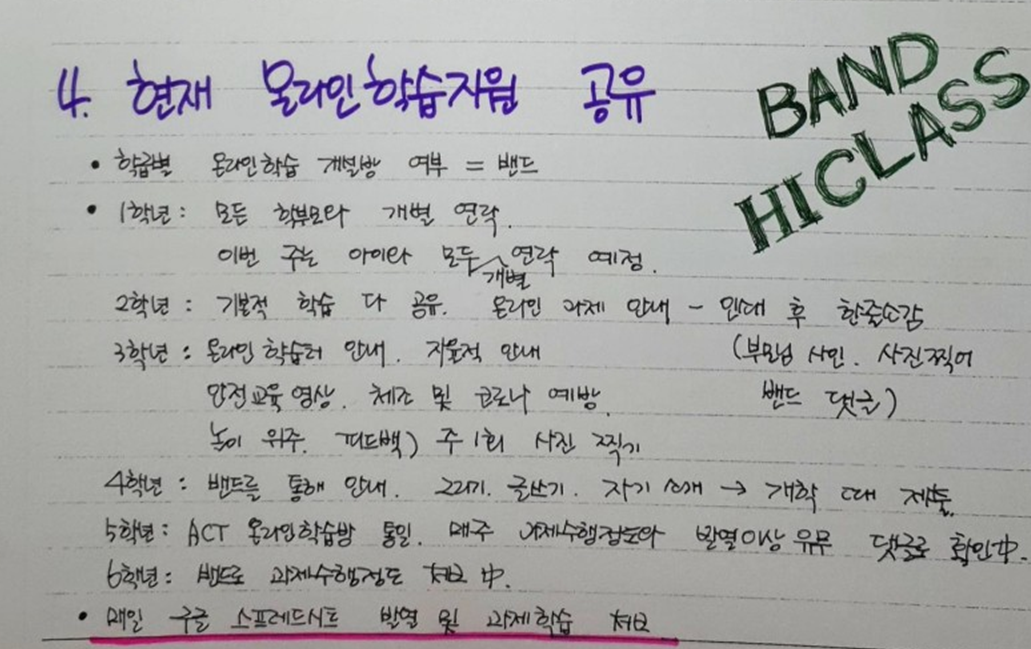 4. 현재 온라인학습지원 공유
BAND
HICLASS
• 학급별 온라인학습 개설방 여부 = 밴드
• 1학년 : 모든 학부모와 개별 연락.
이번 주는 아이와 모두 개별 연락 예정.
2학년 : 기본적 학습 다 공유. 온라인 과제 안내 - 인쇄 후 한줄소감
(부모님 사인. 사진찍어
밴드 댓글)
3학년 : 온라인 학습터 안내. 자율적 안내
안전교육 영상. 체조 및 코로나 예방.
놀이 위주. 피드백) 주 1회 사진 찍기
4학년 : 밴드를 통해 안내. 그리기. 글쓰기. 자기 소개 → 개학 때 제출.
5학년 : ACT 온라인학습방 통일. 매주 과제수행정도와 발열이상 유무 댓글로 확인中.
6학년 : 밴드로 과제수행정도 체크 中.
• 매일 구글 스프레드시트 발열 및 과제학습 체크